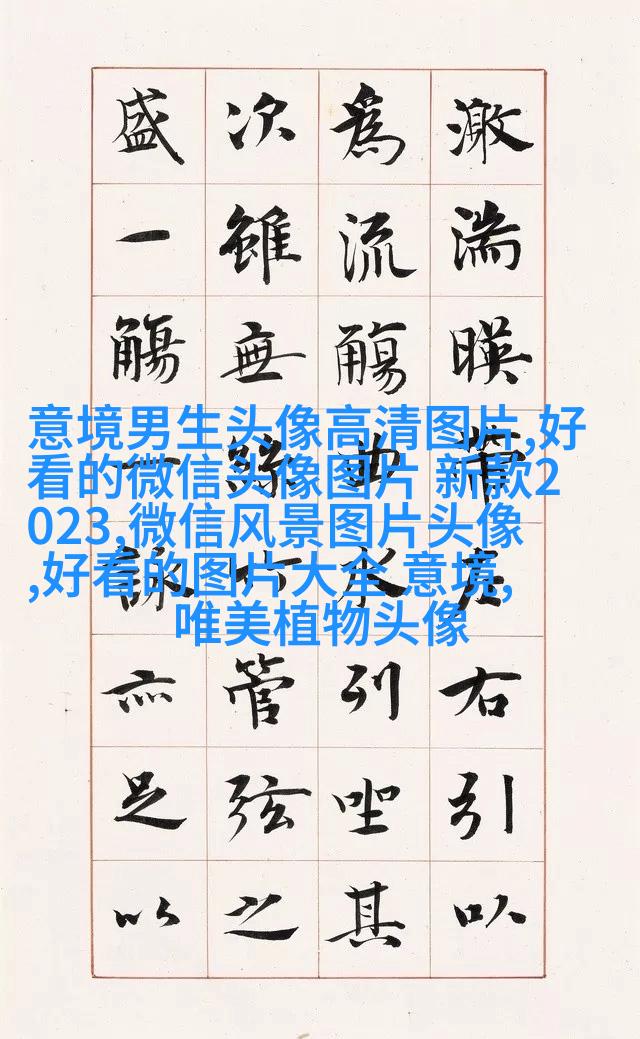 激湍暎帶左右引以
為流觴曲水列坐其
次雖無絲竹管弦之
盛一觴一詠亦足以
意境男生头像高清图片,好
看的微信头像图片 新款2
023,微信风景图片头像
,好看的图片大全 意境,
唯美植物头像